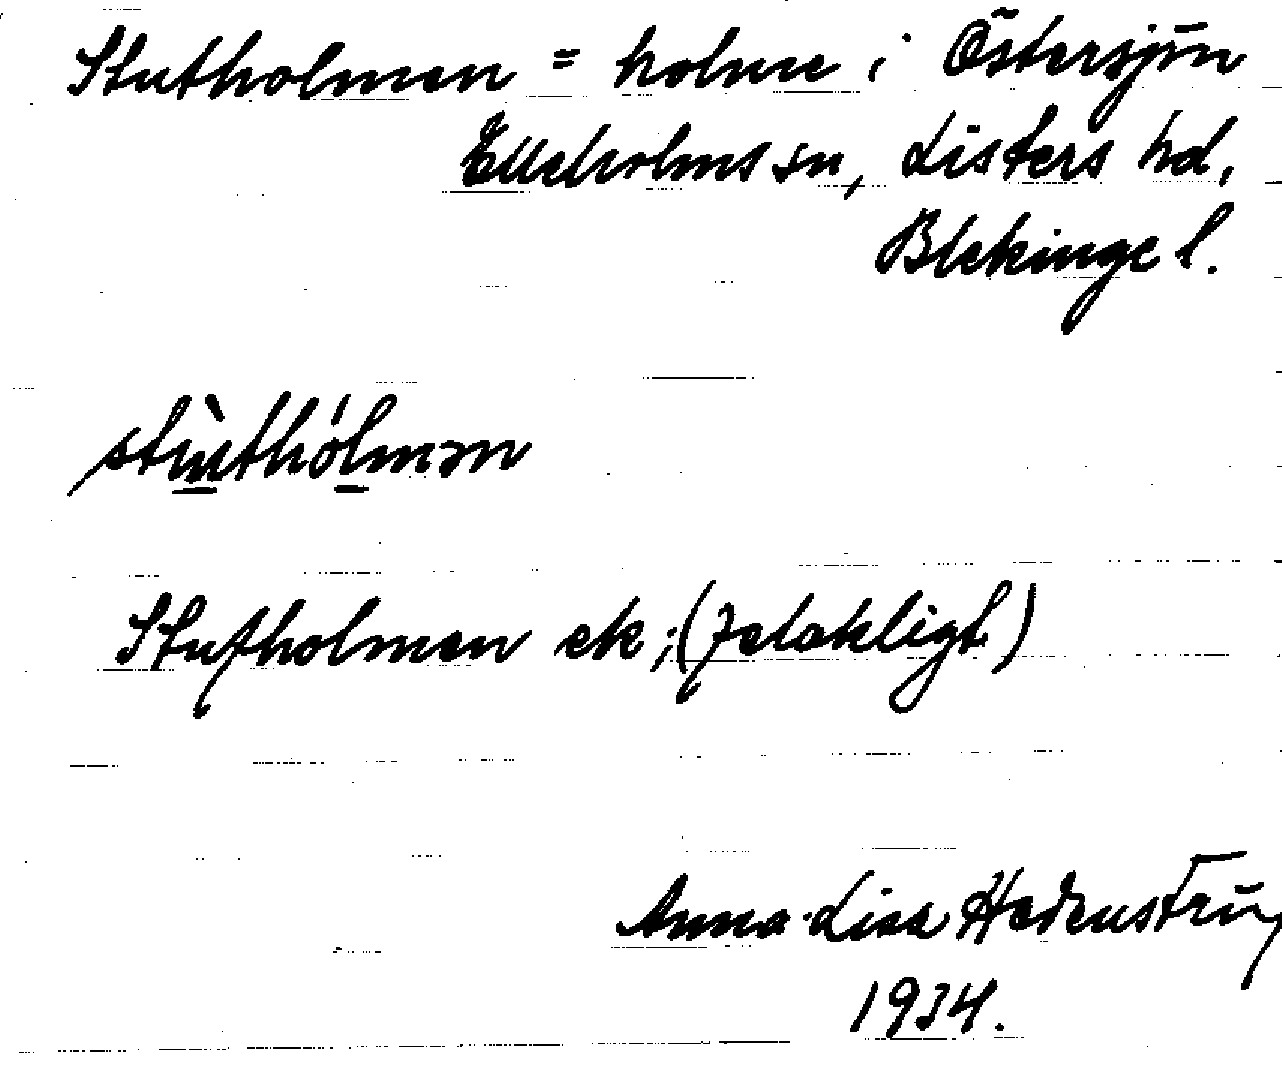 Stutholmen = holme i Östersjön
Elleholms sn, Listers hd,
Blekinge l.
stùthólmən
Stutholmen ek; (felakligt)
Anna-Lisa
1934.